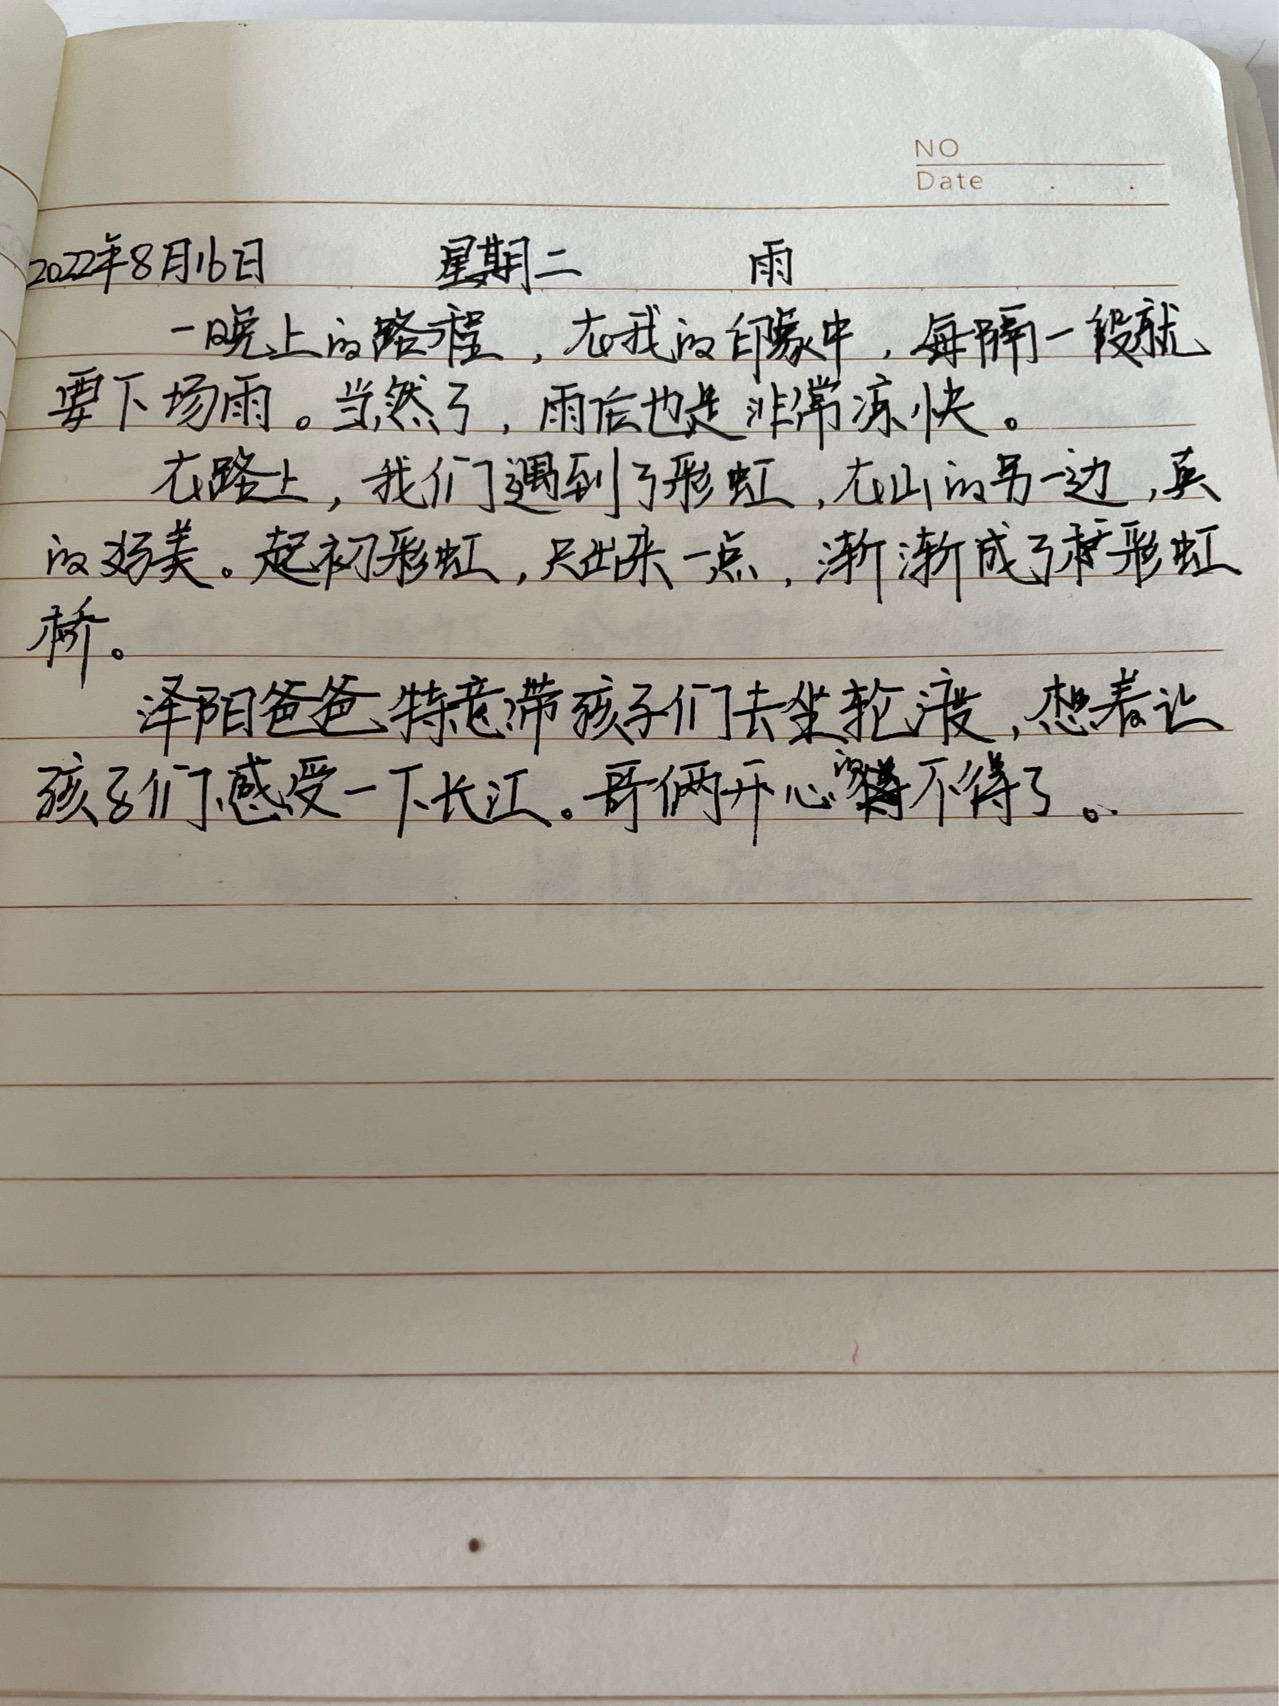 NO
Date . .
2022年8月16日 星期二 雨
一晚上的路程，在我的印象中，每隔一段就
要下场雨。当然了，雨后也是非常凉快。
在路上，我们遇到了彩虹，在山的另一边，真
的好美。起初彩虹，只出来一点，渐渐成了彩虹
桥。
泽阳爸爸特意带孩子们去坐轮渡，想着让
孩子们感受一下长江。哥俩开心的不得了。